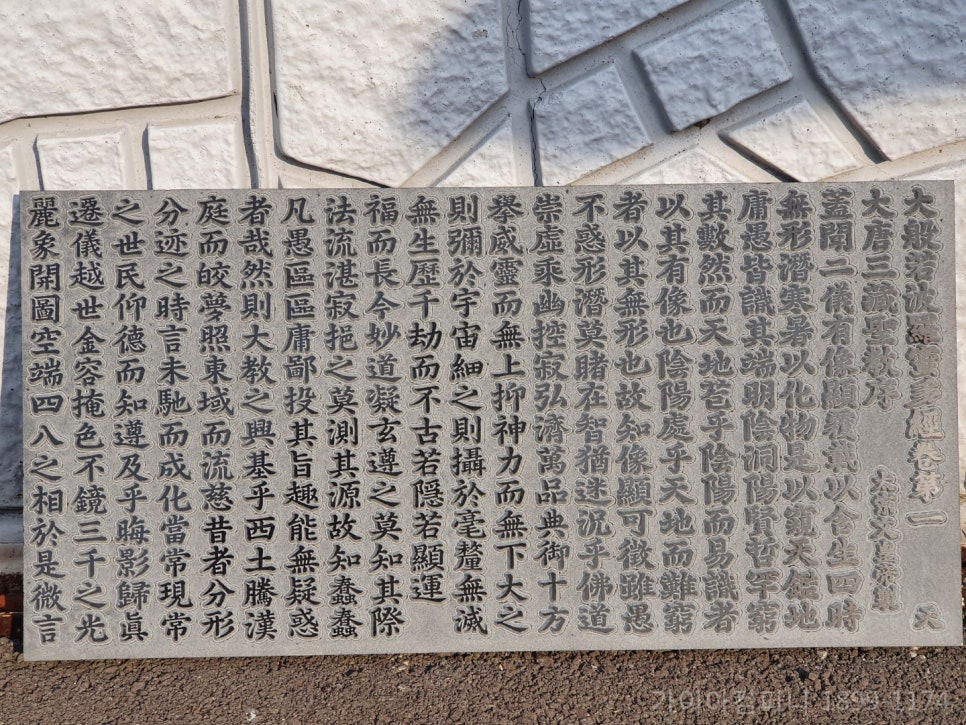 大般若波羅蜜多經卷第一 天
大唐三藏聖教序 太宗文皇帝製
蓋聞二儀有像顯覆載以含生四時
無形潛寒暑以化物是以窺天鑑地
庸愚皆識其端明陰洞陽賢哲罕窮
其數然而天地苞乎陰陽而易識者
以其有像也陰陽處乎天地而難窮
者以其無形也故知像顯可徵雖愚
不惑形潛莫睹在智猶迷況乎佛道
崇虛乘幽控寂弘濟萬品典御十方
擧威靈而無上抑神力而無下大之
則彌於宇宙細之則攝於毫釐無滅
無生歷千劫而不古若隱若顯運
福而長今妙道凝玄遵之莫知其際
法流湛寂挹之莫測其源故知蠢蠢
凡愚區區庸鄙投其旨趣能無疑惑
者哉然則大教之興基乎西土騰漢
庭而皎夢照東域而流慈昔者分形
分迹之時言未馳而成化當常現常
之世民仰德而知遵及乎晦影歸眞
遷儀越世金容掩色不鏡三千之光
麗象開圖空端四八之相於是微言
가이아컴퍼니 1899-1174